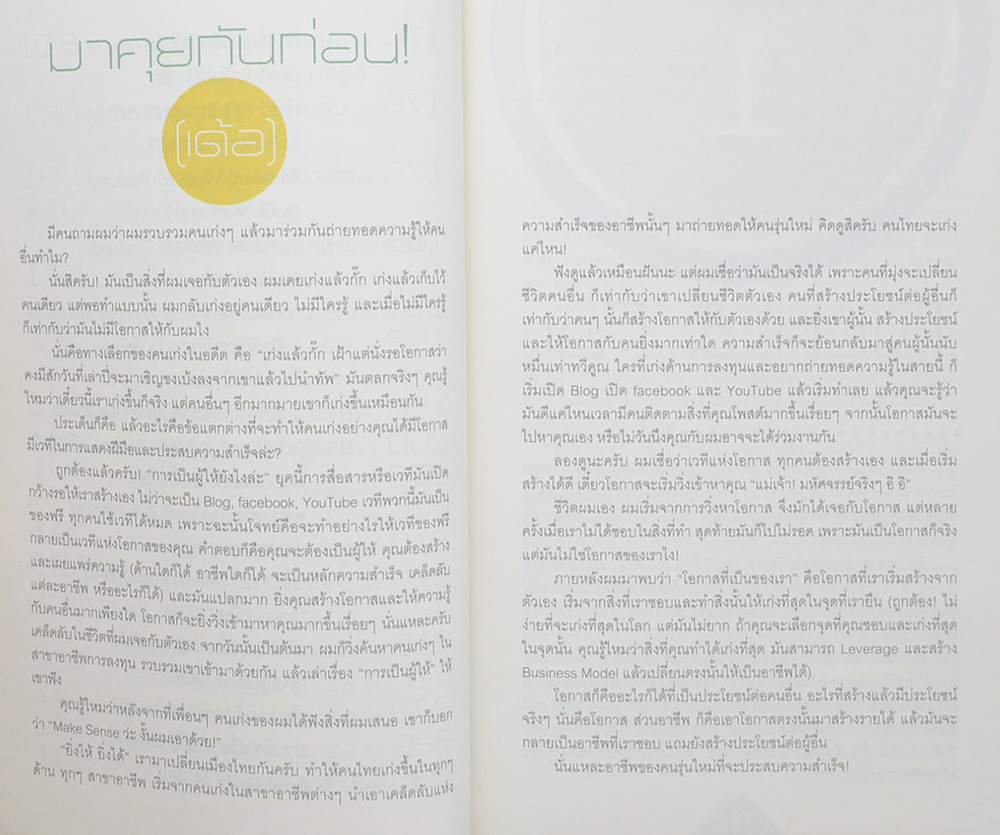 มาคุยกันก่อน!
(เด้อ)
มีคนถามผมว่าผมรวบรวมคนเก่งๆ แล้วมาร่วมกันถ่ายทอดความรู้ให้คน
อื่นทำไม?
นั่นสิครับ! มันเป็นสิ่งที่ผมเจอกับตัวเอง ผมเคยเก่งแล้วกั๊ก เก่งแล้วเก็บไว้
คนเดียว แต่พอทำแบบนั้น ผมกลับเก่งอยู่คนเดียว ไม่มีใครรู้ และเมื่อไม่มีใครรู้
ก็เท่ากับว่ามันไม่มีโอกาสให้กับผมไง
นั่นคือทางเลือกของคนเก่งในอดีต คือ “เก่งแล้วกั๊ก เฝ้าแต่นั่งรอโอกาสว่า
คงมีสักวันที่เล่าปี่จะมาเชิญขงเบ้งลงจากเขาแล้วไปนำทัพ” มันตลกจริงๆ คุณรู้
ไหมว่าเดี๋ยวนี้เราเก่งขึ้นก็จริง แต่คนอื่นๆ อีกมากมายเขาก็เก่งขึ้นเหมือนกัน
ประเด็นก็คือ แล้วอะไรคือข้อแตกต่างที่จะทำให้คนเก่งอย่างคุณได้มีโอกาส
มีเวทีในการแสดงฝีมือและประสบความสำเร็จล่ะ?
ถูกต้องแล้วครับ! “การเป็นผู้ให้ยังไงล่ะ” ยุคนี้การสื่อสารหรือเวทีมันเปิด
กว้างรอให้เราสร้างเอง ไม่ว่าจะเป็น Blog, facebook, YouTube เวทีพวกนี้มันเป็น
ของฟรี ทุกคนใช้เวทีได้หมด เพราะฉะนั้นโจทย์คือจะทำอย่างไรให้เวทีของฟรี
กลายเป็นเวทีแห่งโอกาสของคุณ คำตอบก็คือคุณจะต้องเป็นผู้ให้ คุณต้องสร้าง
และเผยแพร่ความรู้ (ด้านใดก็ได้ อาชีพใดก็ได้ จะเป็นหลักความสำเร็จ เคล็ดลับ
แต่ละอาชีพ หรืออะไรก็ได้) และมันแปลกมาก ยิ่งคุณสร้างโอกาสและให้ความรู้
กับคนอื่นมากเพียงใด โอกาสก็จะยิ่งวิ่งเข้ามาหาคุณมากขึ้นเรื่อยๆ นั่นแหละครับ
เคล็ดลับในชีวิตที่ผมเจอกับตัวเอง จากวันนั้นเป็นต้นมา ผมก็วิ่งค้นหาคนเก่งๆ ใน
สาขาอาชีพการลงทุน รวบรวมเขาเข้ามาด้วยกัน แล้วเล่าเรื่อง “การเป็นผู้ให้” ให้
เขาฟัง
คุณรู้ไหมว่าหลังจากที่เพื่อนๆ คนเก่งของผมได้ฟังสิ่งที่ผมเสนอ เขาก็บอก
ว่า “Make Sense ว่ะ งั้นผมเอาด้วย!”
“ยิ่งให้ ยิ่งได้” เรามาเปลี่ยนเมืองไทยกันครับ ทำให้คนไทยเก่งขึ้นในทุกๆ
ด้าน ทุกๆ สาขาอาชีพ เริ่มจากคนเก่งในสาขาอาชีพต่างๆ นำเอาเคล็ดลับแห่ง
ความสำเร็จของอาชีพนั้นๆ มาถ่ายทอดให้คนรุ่นใหม่ คิดดูสิครับ คนไทยจะเก่ง
แค่ไหน!
ฟังดูแล้วเหมือนฝันนะ แต่ผมเชื่อว่ามันเป็นจริงได้ เพราะคนที่มุ่งจะเปลี่ยน
ชีวิตคนอื่น ก็เท่ากับว่าเขาเปลี่ยนชีวิตตัวเอง คนที่สร้างประโยชน์ต่อผู้อื่นก็
เท่ากับว่าคนๆ นั้นก็สร้างโอกาสให้กับตัวเองด้วย และยิ่งเขาผู้นั้น สร้างประโยชน์
และให้โอกาสกับคนยิ่งมากเท่าใด ความสำเร็จก็จะย้อนกลับมาสู่คนผู้นั้นนับ
หมื่นเท่าทวีคูณ ใครที่เก่งด้านการลงทุนและอยากถ่ายทอดความรู้ในสายนี้ ก็
เริ่มเปิด Blog เปิด facebook และ YouTube แล้วเริ่มทำเลย แล้วคุณจะรู้ว่า
มันดีแค่ไหนเวลามีคนติดตามสิ่งที่คุณโพสต์มากขึ้นเรื่อยๆ จากนั้นโอกาสมันจะ
ไปหาคุณเอง หรือไม่วันนึงคุณกับผมอาจจะได้ร่วมงานกัน
ลองดูนะครับ ผมเชื่อว่าเวทีแห่งโอกาส ทุกคนต้องสร้างเอง และเมื่อเริ่ม
สร้างได้ดี เดี๋ยวโอกาสจะเริ่มวิ่งเข้าหาคุณ “แม่เจ้า! มหัศจรรย์จริงๆ อิ อิ”
ชีวิตผมเอง ผมเริ่มจากการวิ่งหาโอกาส จึงมักได้เจอกับโอกาส แต่หลาย
ครั้งเมื่อเราไม่ได้ชอบในสิ่งที่ทำ สุดท้ายมันก็ไปไม่รอด เพราะมันเป็นโอกาสก็จริง
แต่มันไม่ใช่โอกาสของเราไง!
ภายหลังผมมาพบว่า “โอกาสที่เป็นของเรา” คือโอกาสที่เราเริ่มสร้างจาก
ตัวเอง เริ่มจากสิ่งที่เราชอบและทำสิ่งนั้นให้เก่งที่สุดในจุดที่เรายืน (ถูกต้อง! ไม่
ง่ายที่จะเก่งที่สุดในโลก แต่มันไม่ยาก ถ้าคุณจะเลือกจุดที่คุณชอบและเก่งที่สุด
ในจุดนั้น คุณรู้ไหมว่าสิ่งที่คุณทำได้เก่งที่สุด มันสามารถ Leverage และสร้าง
Business Model แล้วเปลี่ยนตรงนั้นให้เป็นอาชีพได้)
โอกาสก็คืออะไรก็ได้ที่เป็นประโยชน์ต่อคนอื่น อะไรที่สร้างแล้วมีประโยชน์
จริงๆ นั่นคือโอกาส ส่วนอาชีพ ก็คือเอาโอกาสตรงนั้นมาสร้างรายได้ แล้วมันจะ
กลายเป็นอาชีพที่เราชอบ แถมยังสร้างประโยชน์ต่อผู้อื่น
นั่นแหละอาชีพของคนรุ่นใหม่ที่จะประสบความสำเร็จ!